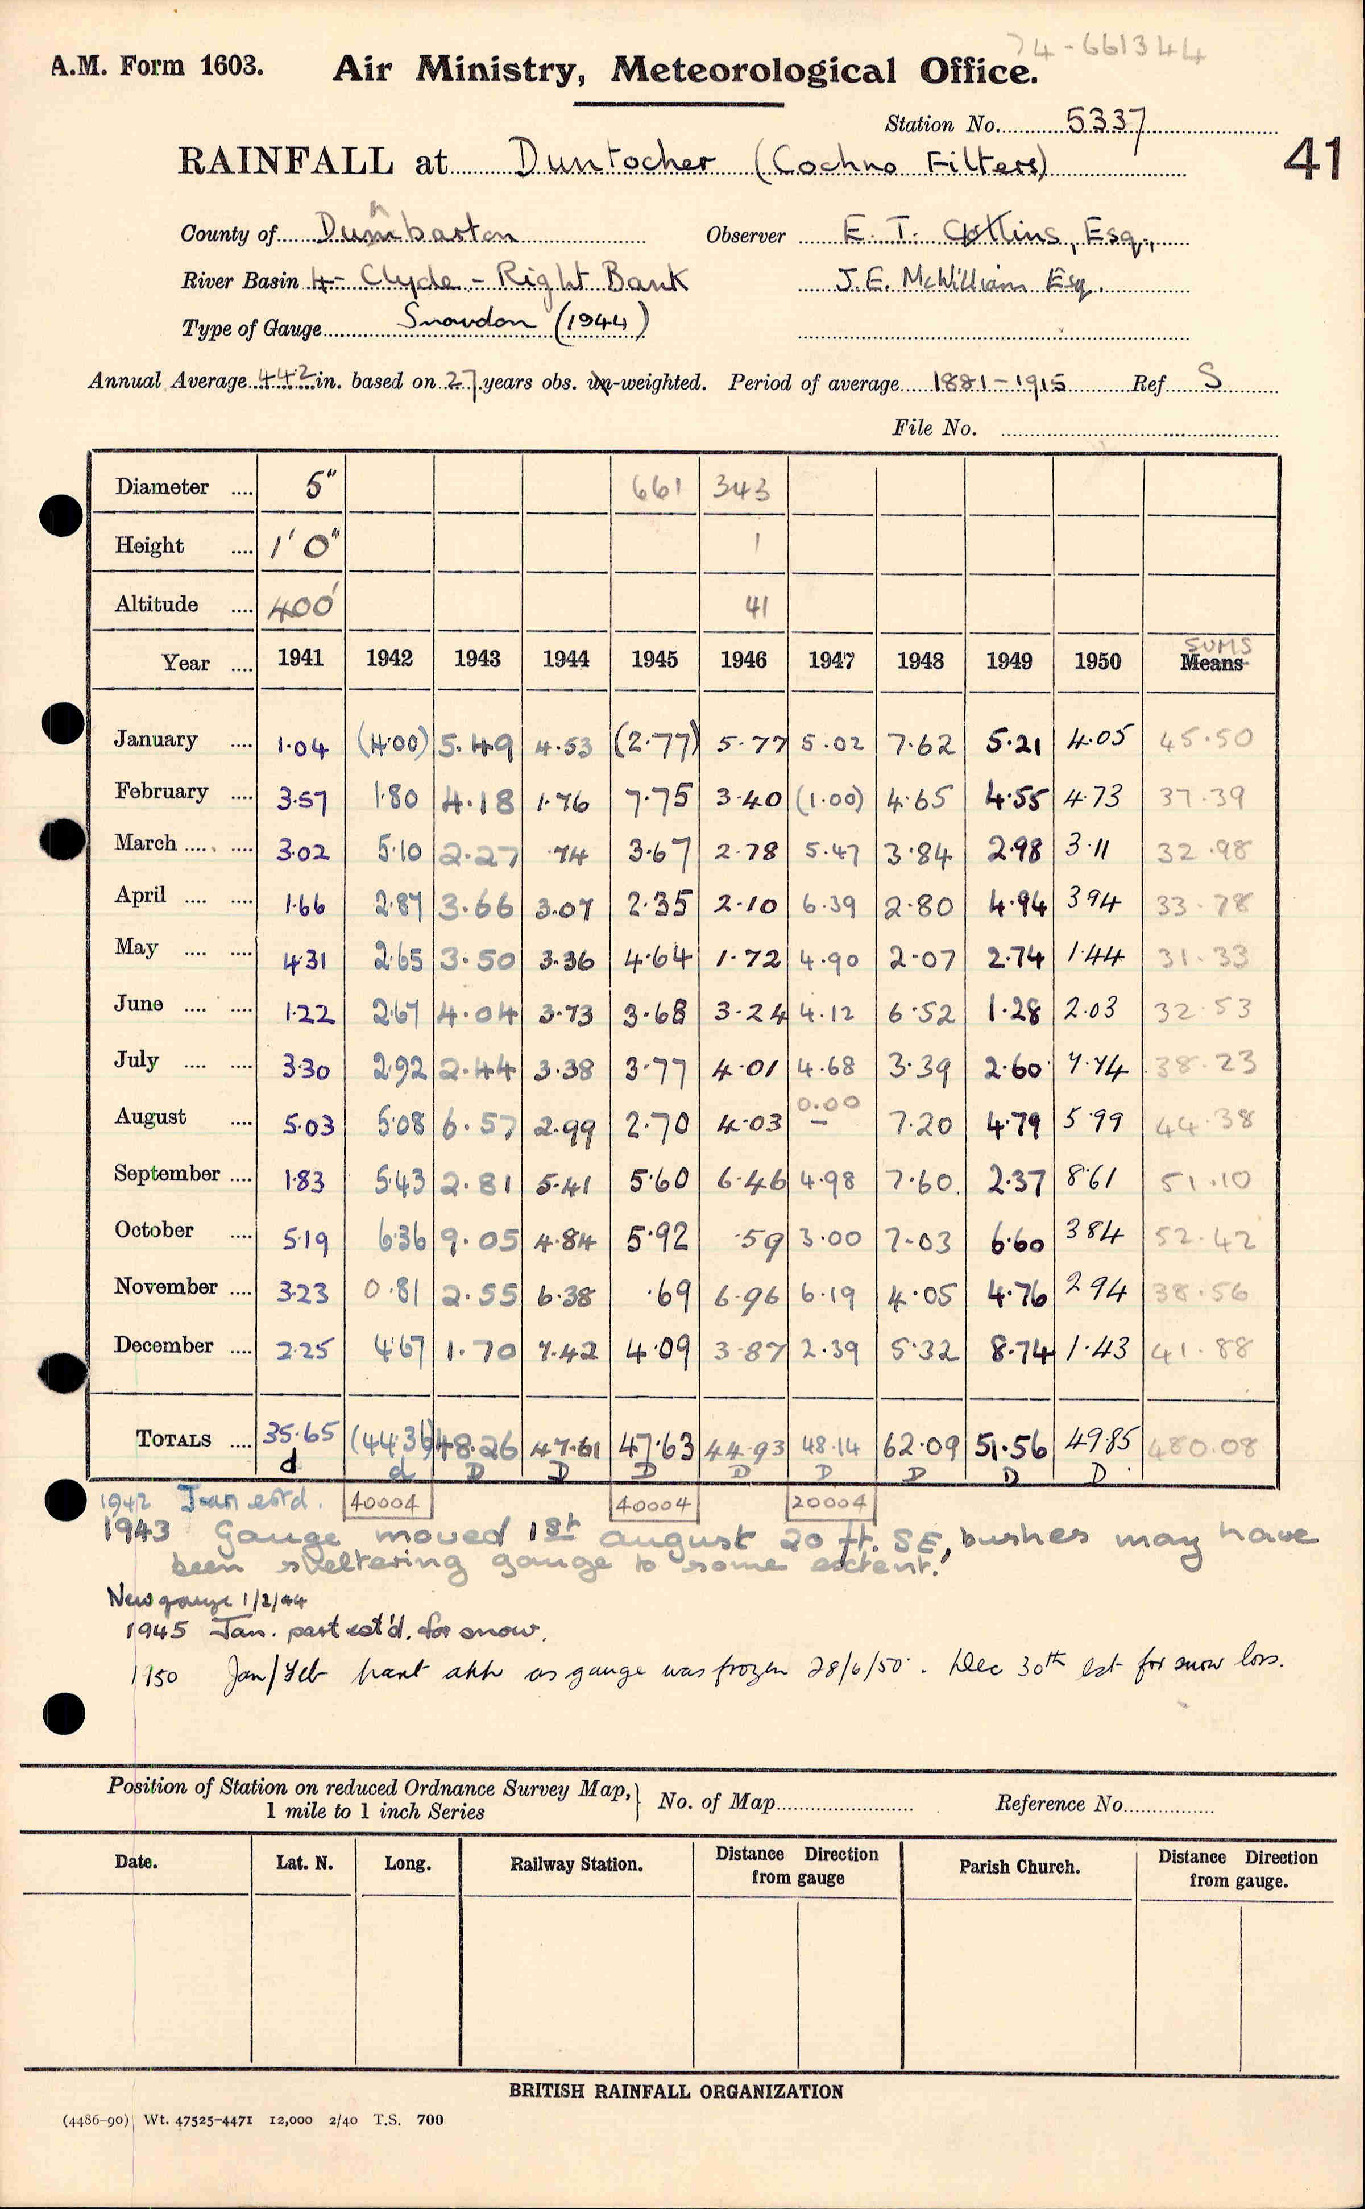 74-661344
A.M. Form 1603. Air Ministry, Meteorological Office.
Station No. 5337
41
RAINFALL at Duntocher (Cochno Filters)
County of Dumbarton Observer E. T. Collins, Esq.,
River Basin 4 - Clyde - Right Bank J.E. McWilliam Esq.
Type of Gauge Snowdon (1944)
Annual Average 44.2 in. based on 27 years obs. un-weighted. Period of average 1881-1915 Ref S
File No.
Diameter .... 5" 661 343
Height .... 1' 0" 1
Altitude .... 400' 41
Year .... 1941 1942 1943 1944 1945 1946 1947 1948 1949 1950 SUMS Means
January .... 1.04 (4.00) 5.49 4.53 (2.77) 5.77 5.02 7.62 5.21 4.05 45.50
February .... 3.57 1.80 4.18 1.76 7.75 3.40 (1.00) 4.65 4.55 4.73 37.39
March .... .... 3.02 5.10 2.27 .74 3.67 2.78 5.47 3.84 2.98 3.11 32.98
April .... .... 1.66 2.87 3.66 3.07 2.35 2.10 6.39 2.80 4.94 3.94 33.78
May .... .... 4.31 2.65 3.50 3.36 4.64 1.72 4.90 2.07 2.74 1.44 31.33
June .... .... 1.22 2.67 4.04 3.73 3.68 3.24 4.12 6.52 1.28 2.03 32.53
July .... .... 3.30 2.92 2.44 3.38 3.77 4.01 4.68 3.39 2.60 7.74 38.23
August .... 5.03 5.08 6.57 2.99 2.70 4.03 0.00 – 7.20 4.79 5.99 44.38
September .... 1.83 5.43 2.81 5.41 5.60 6.46 4.98 7.60 2.37 8.61 51.10
October .... 5.19 6.36 9.05 4.84 5.92 .59 3.00 7.03 6.60 3.84 52.42
November .... 3.23 0.81 2.55 6.38 .69 6.96 6.19 4.05 4.76 2.94 38.56
December .... 2.25 4.67 1.70 7.42 4.09 3.87 2.39 5.32 8.74 1.43 41.88
TOTALS .... 35.65 (44.36) 48.26 47.61 47.63 44.93 48.14 62.09 51.56 49.85 480.08
d d D D D D D D D D
1942 Jan est'd. 40004 40004 20004
1943 Gauge moved 1st august 20 ft. SE, bushes may have
been sheltering gauge to some extent.
New gauge 1/2/44
1945 Jan. part est'd. for snow.
1950 Jan/Feb part as gauge was frozen 28/6/50. Dec 30th est for snow loss.
Position of Station on reduced Ordnance Survey Map,
1 mile to 1 inch Series
No. of Map Reference No.
Date. Lat. N. Long. Railway Station. Distance from gauge Direction Parish Church. Distance Direction from gauge.
BRITISH RAINFALL ORGANIZATION
(4486-90) Wt. 47525-4471 12,000 2/40 T.S. 700